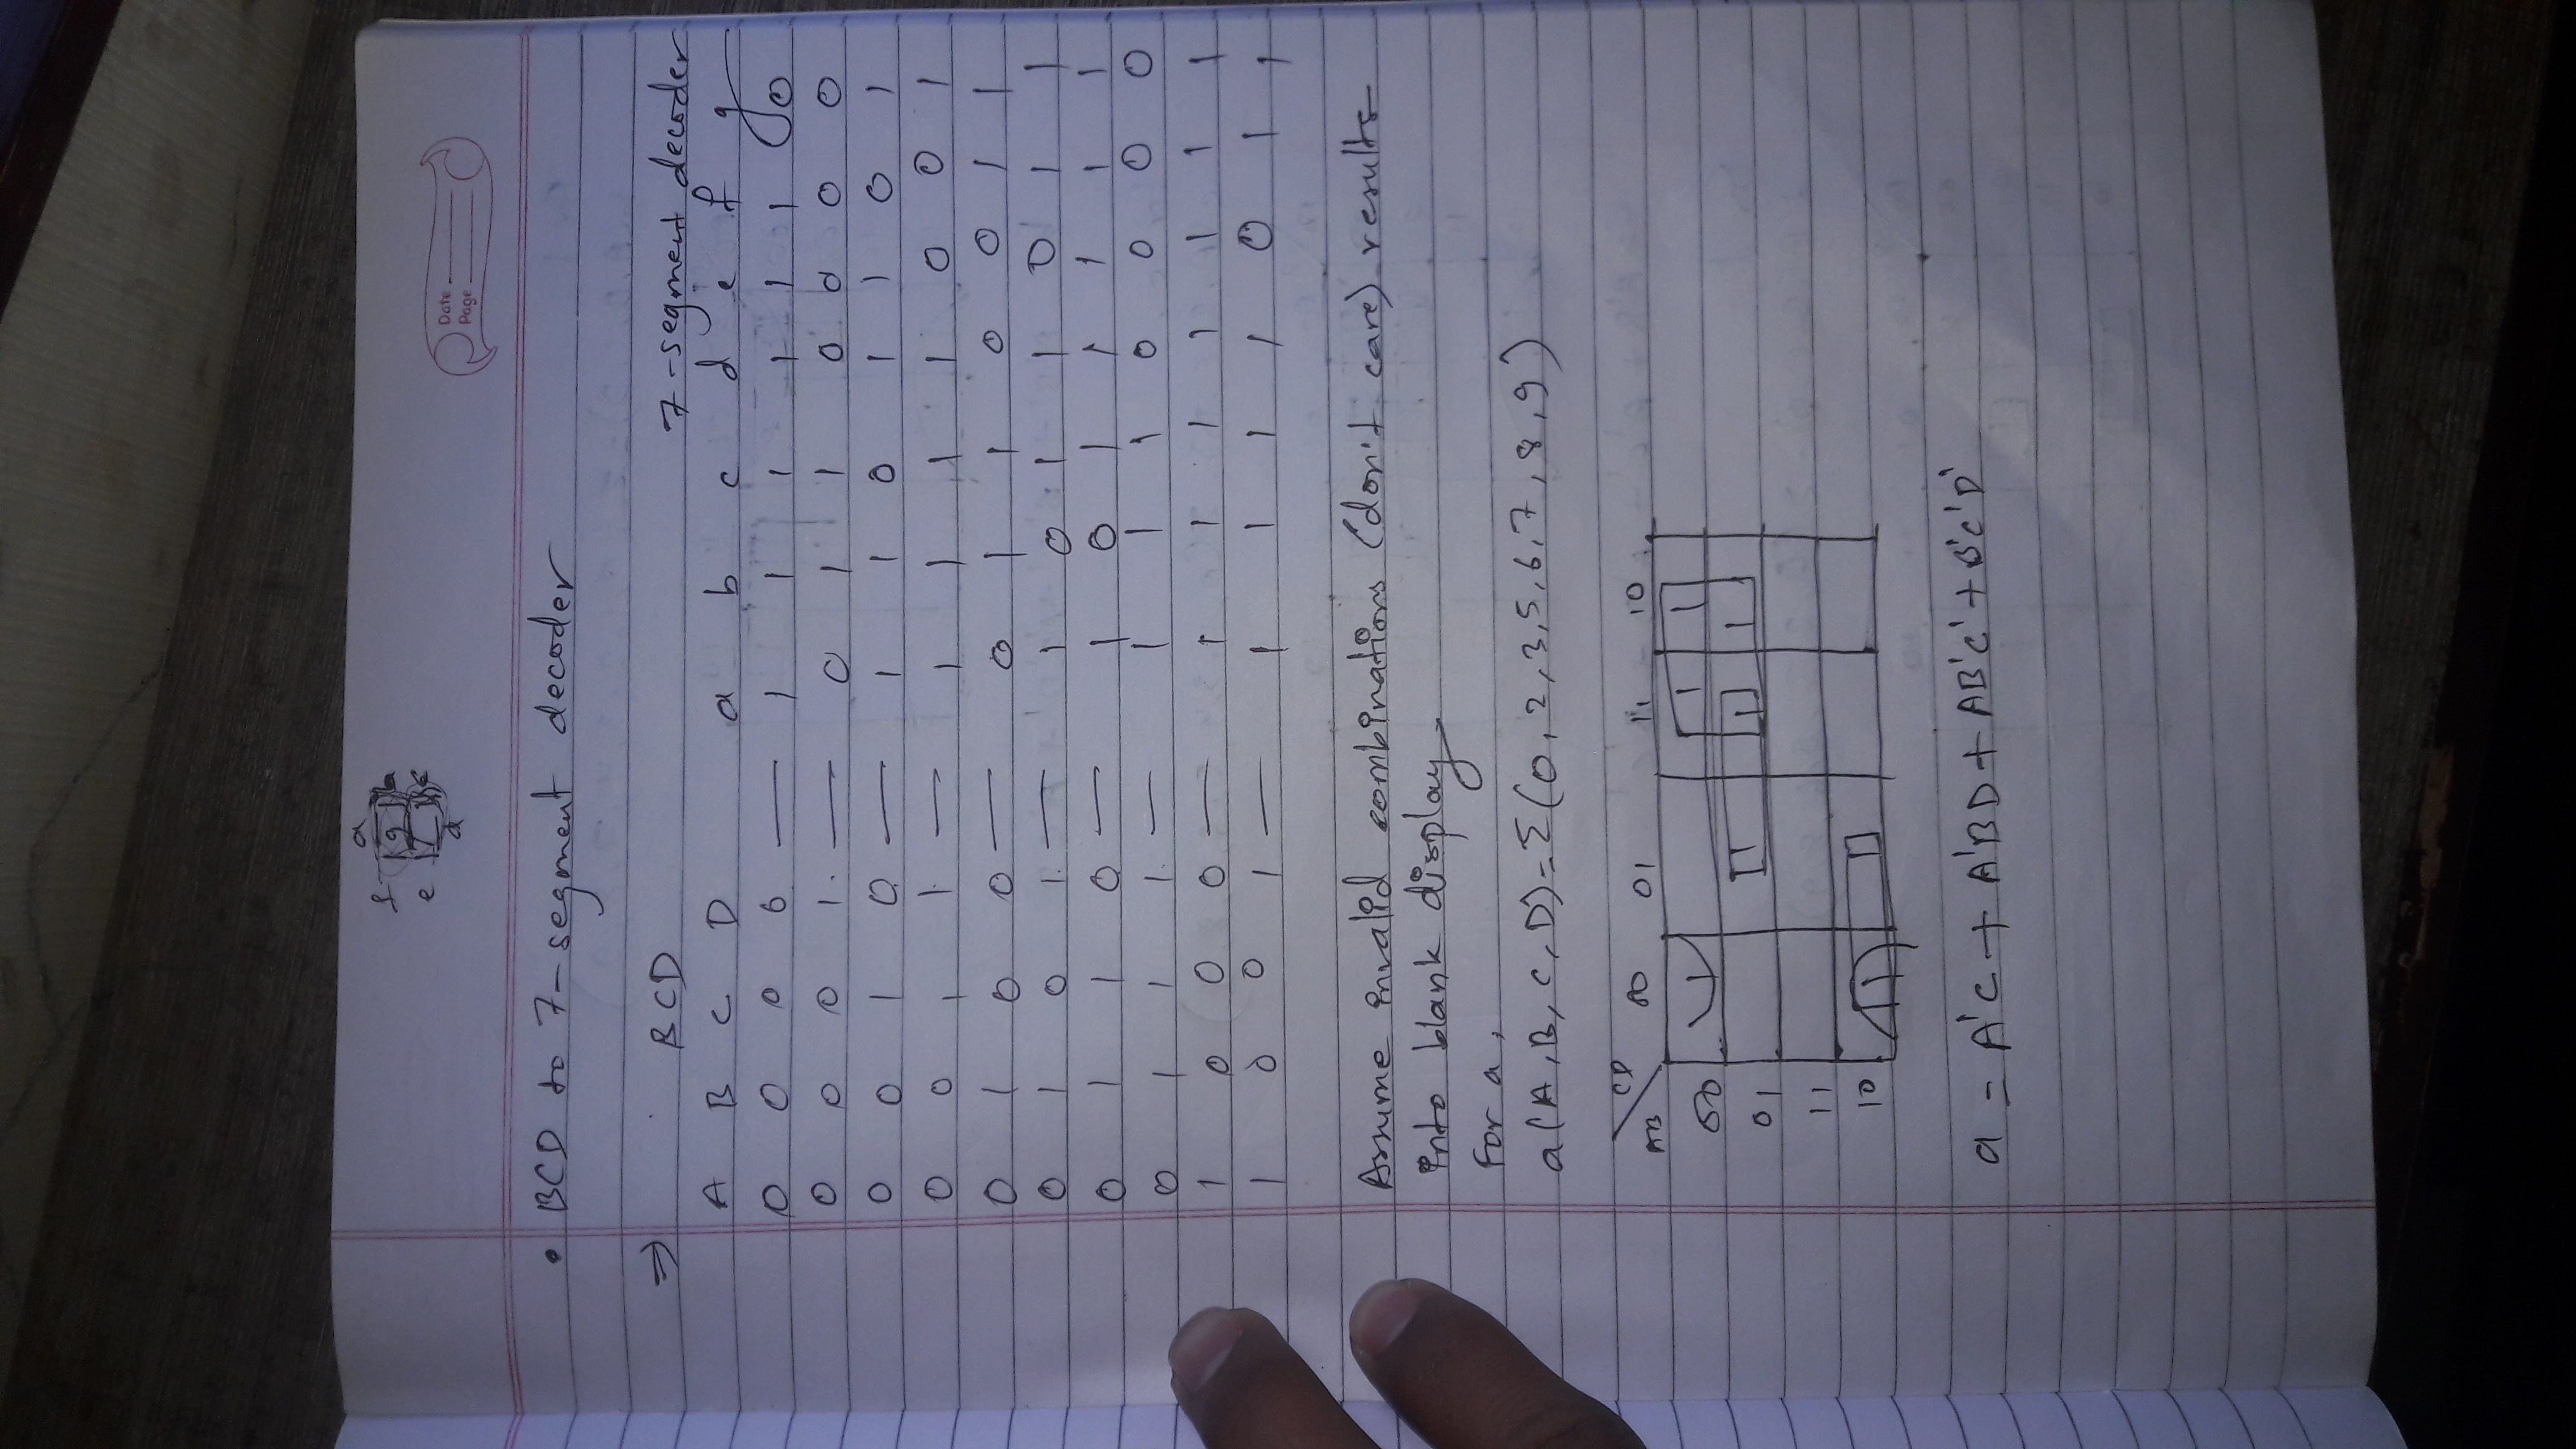 a
f g b
e c
d
Date
Page
• BCD to 7-segment decoder
⇒ BCD 7-segment decoder
A B C D a b c d e f g
0 0 0 0 — 1 1 1 1 1 1 0
0 0 0 1 — 0 1 1 0 0 0 0
0 0 1 0 — 1 1 0 1 1 0 1
0 0 1 1 — 1 1 1 1 0 0 1
0 1 0 0 — 0 1 1 0 0 1 1
0 1 0 1 — 1 0 1 1 0 1 1
0 1 1 0 — 1 0 1 1 1 1 1
0 1 1 1 — 1 1 1 0 0 0 0
1 0 0 0 — 1 1 1 1 1 1 1
1 0 0 1 — 1 1 1 1 0 1 1
Assume invalid combinations (don't care) results
into blank display.
For a,
a(A,B,C,D)=Σ(0,2,3,5,6,7,8,9)
CD
AB 00 01 11 10
00 1 1 1
01 1 1 1
11
10 1 1
a = A'C + A'BD + AB'C' + B'C'D'